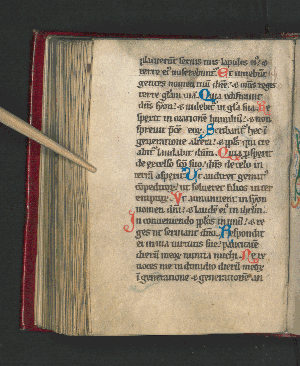 placuerunt seruis tuis lapides ei᷒ ⁊
terre ei᷒ miserebunt᷑. Et timebūt
gentes nomen tuū dn̄e. ⁊ om̄s reges
terre gl̄am tuā. Quia edificauit
dn̄s syon. ⁊ uidebit᷑ in gl̄a sua. Re
spexit in orationē humiliū. ⁊ non
spreuit p̄cē eoꝝ. Scribant᷑ hec ī
generatione altera. ⁊ pl̄s qui cre
abit᷑ laudabit dn̄m. Quia ꝓspexit
de excelso sc̄o suo. dn̄s de celo in
terrā aspexit. Ut audiret gemit᷒
cōpeditoꝝ. ut solueret filios inter
emptoꝝ. Ut annuntient in syon
nomen dn̄i. ⁊ laudē ei᷒ in ihrlm̄.
In conueniendo pl̄os in unū. ⁊ re
ges ut seruiant dn̄o. Respondit
ei in uia uirtutis sue. paucitatē
dierū meoꝝ nuntia michi. Ne re
uoces me in dimidio dierū meoꝝ
ī generatione ⁊ generationē an